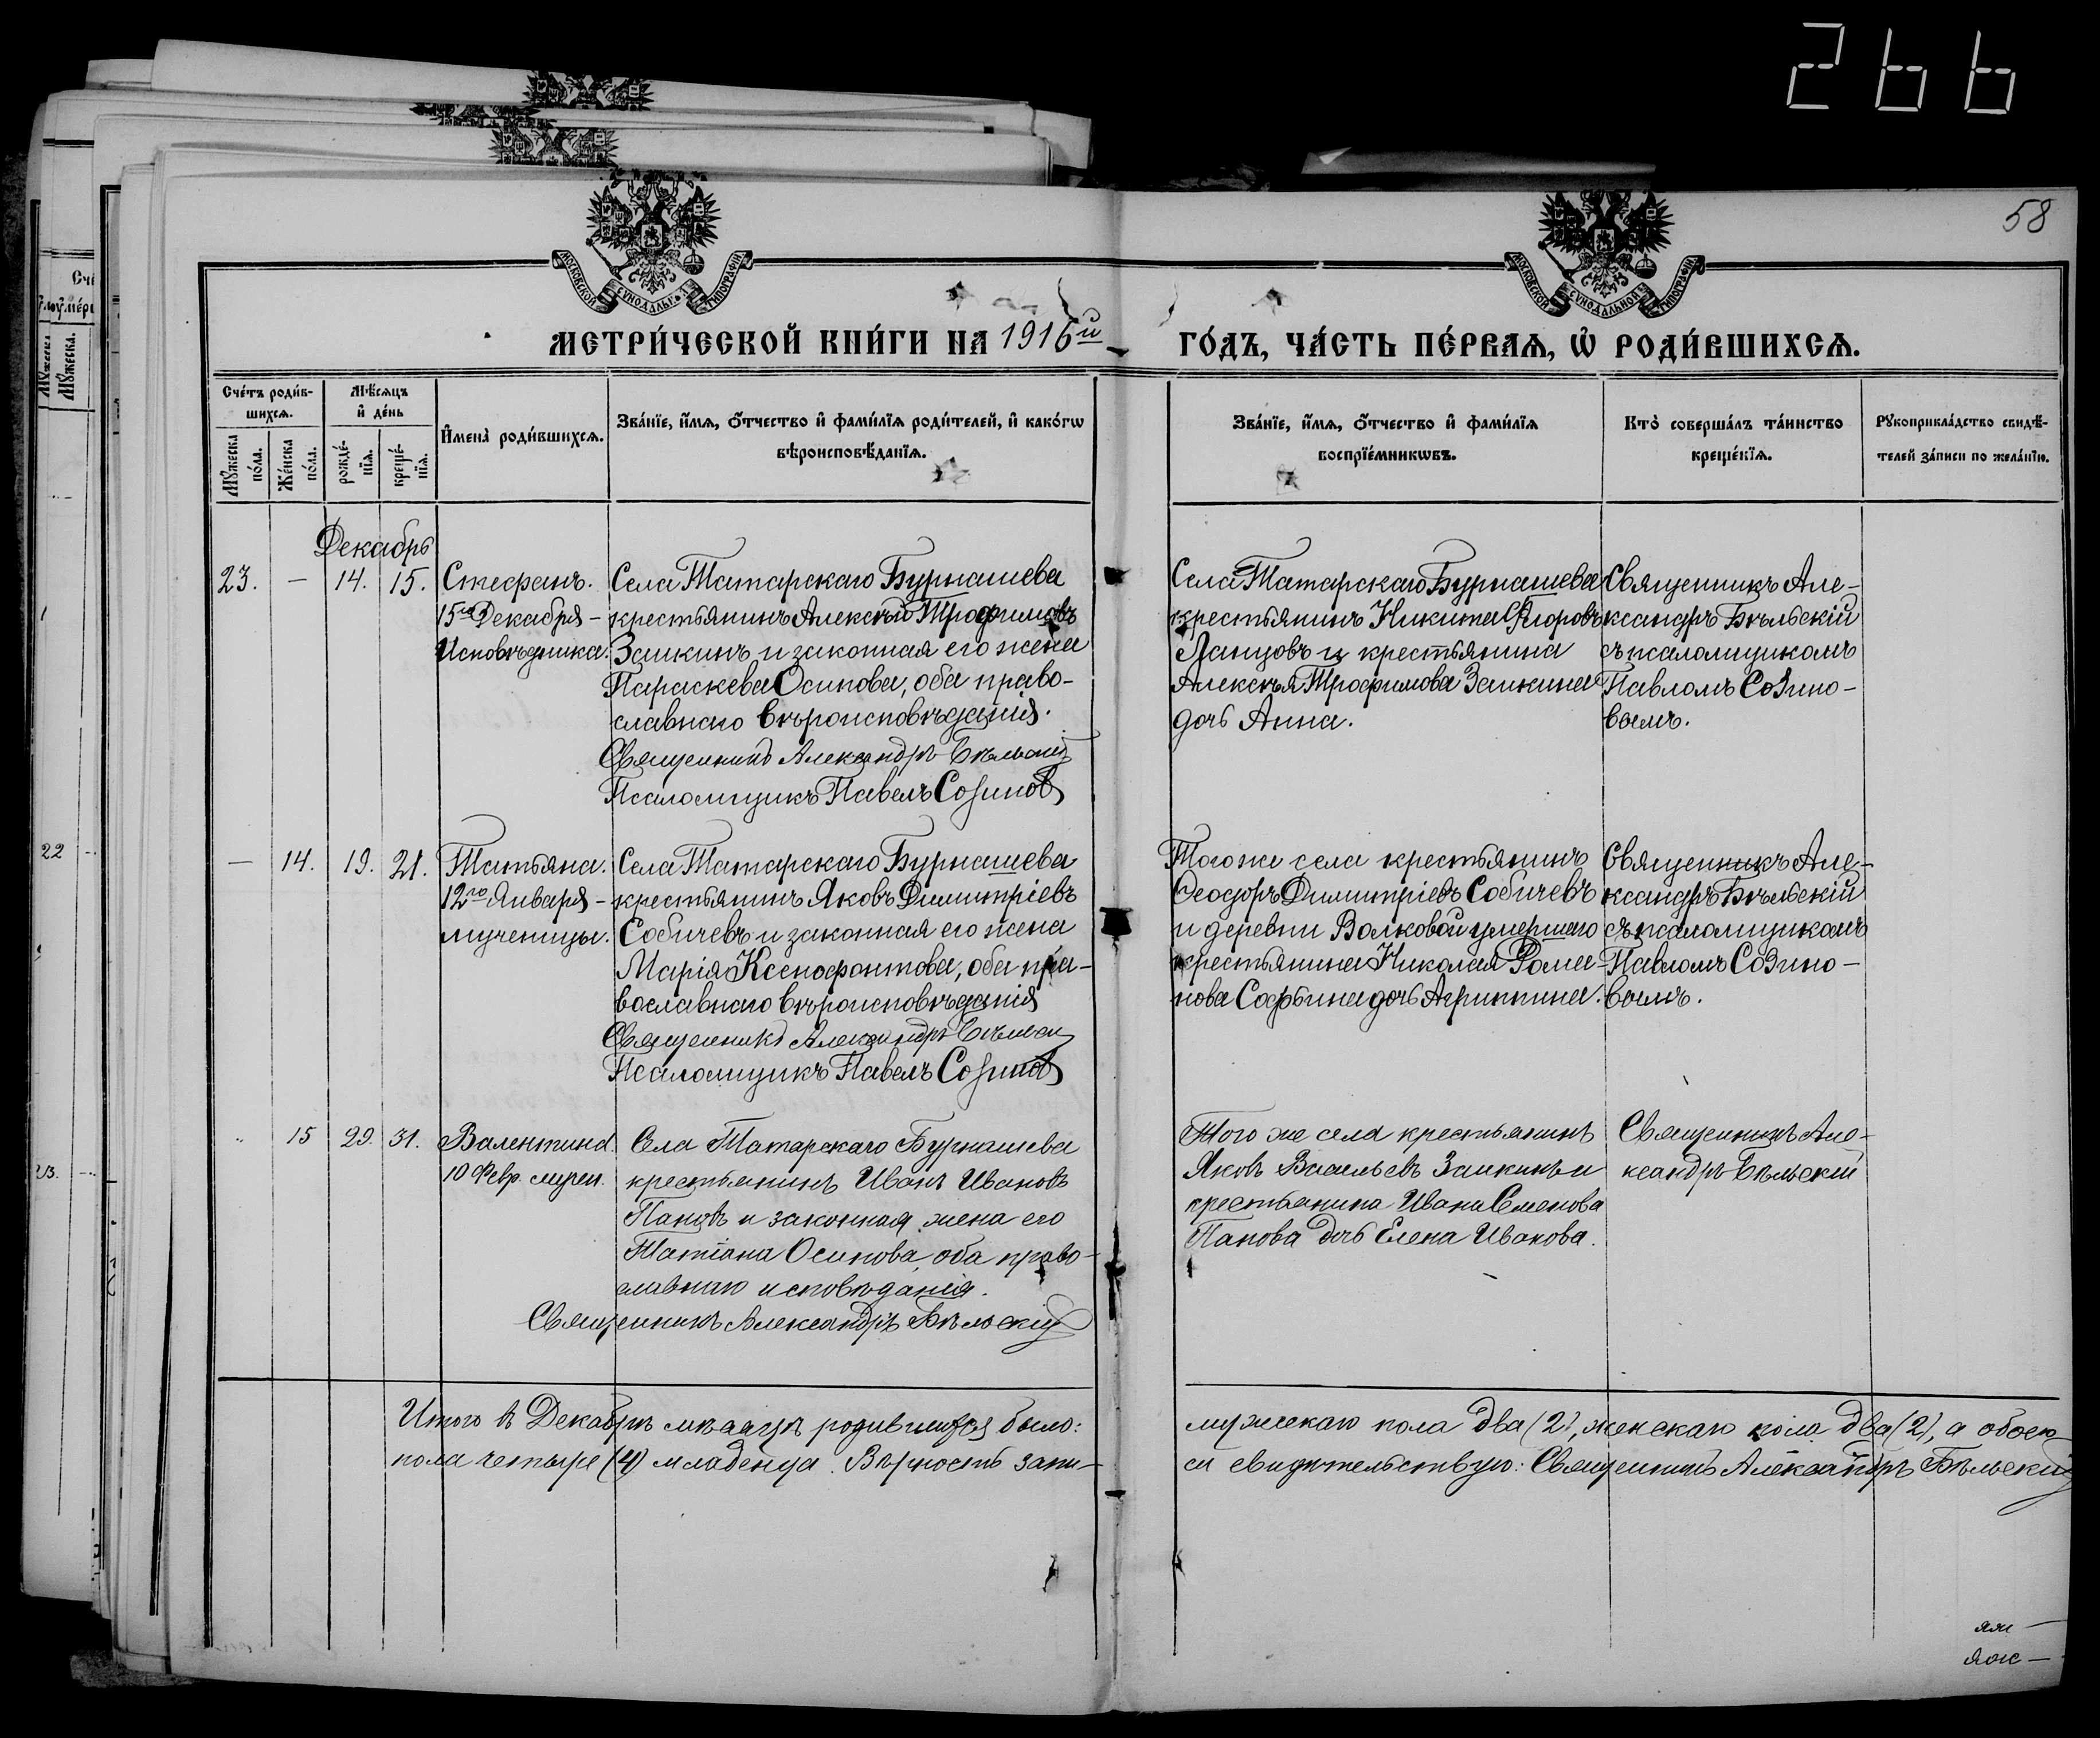 266
58
МОСКОВСКОЙ СѴНОДАЛЬНОЙ ТИПОГРАФІИ
МОСКОВСКОЙ СѴНОДАЛЬНОЙ ТИПОГРАФІИ
МЕТРИ́ЧЕСКОЙ КНИ́ГИ НА 1916й ГО́ДЪ, ЧА́СТЬ ПЕ́РВАѦ, Ѡ҆ РОДИ́ВШИХСѦ.
Сче́тъ роди́в-
шихсѧ.
Мꙋ́жеска по́ла.
Же́нска по́ла.
Мѣ́сѧцъ и҆ де́нь
рожде́-
нїѧ.
креще́-
нїѧ.
И҆мена̀ роди́вшихсѧ.
Зва́нїе, и҆́мѧ, ѻ҆́тчество и҆ фами́лїѧ роди́телей, и҆ како́гѡ
вѣроисповѣ́данїѧ.
Зва́нїе, и҆́мѧ, ѻ҆́тчество и҆ фами́лїѧ
воспрїе́мникѡвъ.
Кто̀ соверша́лъ та́инство
креще́нїѧ.
Рꙋкоприкла́дство свидѣ́-
телей за́писи по жела́нїю.
Декабрь
23. — 14. 15.
Стефанъ.
15го Декабря -
Исповѣдника.
Села Татарскаго Бурнашева
крестьянинъ Алексѣй Трофимовъ
Заикинъ и законная его жена
Параскева Осипова, оба право-
славнаго вѣроисповѣданія.
Священникъ Александръ Бѣльскій
Псаломщикъ Павелъ Созинов
Села Татарскаго Бурнашева
крестьянинъ Никита Егоровъ
Ланцовъ и крестьянина
Алексѣя Трофимова Заикина
дочь Анна.
Священникъ Але-
ксандръ Бѣльскій
съ псаломщикомъ
Павломъ Созино-
вымъ.
— 14. 19. 21.
Татьяна.
12го Января -
мученицы.
Села Татарскаго Бурнашева
крестьянинъ Яковъ Димитріевъ
Собичевъ и законная его жена
Марія Ксенофонтова, оба пра-
вославнаго вѣроисповѣданія
Священникъ Александръ Бѣльскій
Псаломщикъ Павелъ Созинов
Того же села крестьянинъ
Ѳеодоръ Димитріевъ Собичевъ
и деревни Волковой умершаго
крестьянина Николая Рома-
нова Софьина дочь Агриппина.
Священникъ Але-
ксандръ Бѣльскій
съ псаломщикомъ
Павломъ Созино-
вымъ.
" 15 29. 31.
Валентина.
10 Февр. мучен.
Села Татарскаго Бурнашева
крестьянинъ Иванъ Ивановъ
Пановъ и законная жена его
Татіана Осипова, оба право-
славнаго исповѣданія.
Священникъ Александръ Бѣльскій
Того же села крестьянинъ
Яковъ Васильевъ Заикинъ и
крестьянина Ивана Семенова
Панова дочь Елена Иванова.
Священникъ Але-
ксандръ Бѣльскій
Итого въ Декабрѣ мѣсяцѣ родившихся было: мужскаго пола два (2), женскаго пола два (2), а обоего
пола четыре (4) младенца. Вѣрность запи- си свидѣтельствую: Священникъ Александръ Бѣльскій
22
23.